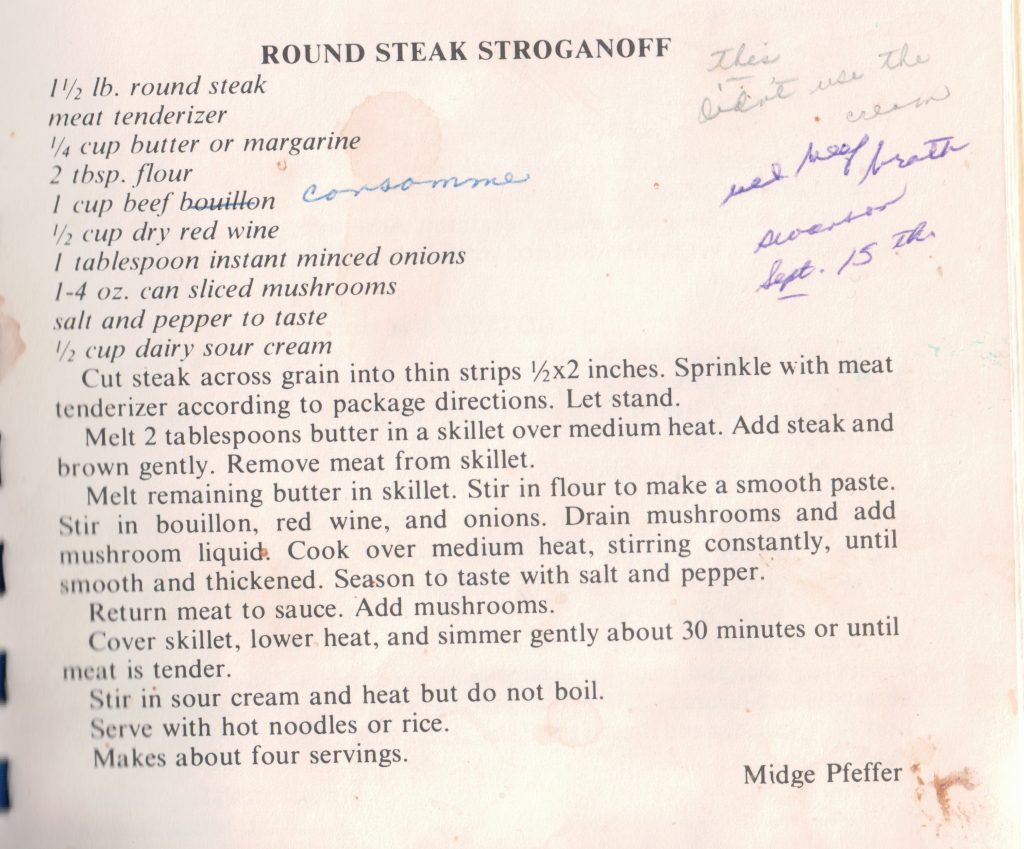 ROUND STEAK STROGANOFF
this
didn't use the
cream
1½ lb. round steak
meat tenderizer
¼ cup butter or margarine
2 tbsp. flour
1 cup beef bouillon consomme
used beef broth
swanson
Sept. 15 th.
½ cup dry red wine
1 tablespoon instant minced onions
1-4 oz. can sliced mushrooms
salt and pepper to taste
½ cup dairy sour cream
Cut steak across grain into thin strips ½x2 inches. Sprinkle with meat
tenderizer according to package directions. Let stand.
Melt 2 tablespoons butter in a skillet over medium heat. Add steak and
brown gently. Remove meat from skillet.
Melt remaining butter in skillet. Stir in flour to make a smooth paste.
Stir in bouillon, red wine, and onions. Drain mushrooms and add
mushroom liquid. Cook over medium heat, stirring constantly, until
smooth and thickened. Season to taste with salt and pepper.
Return meat to sauce. Add mushrooms.
Cover skillet, lower heat, and simmer gently about 30 minutes or until
meat is tender.
Stir in sour cream and heat but do not boil.
Serve with hot noodles or rice.
Makes about four servings.
Midge Pfeffer